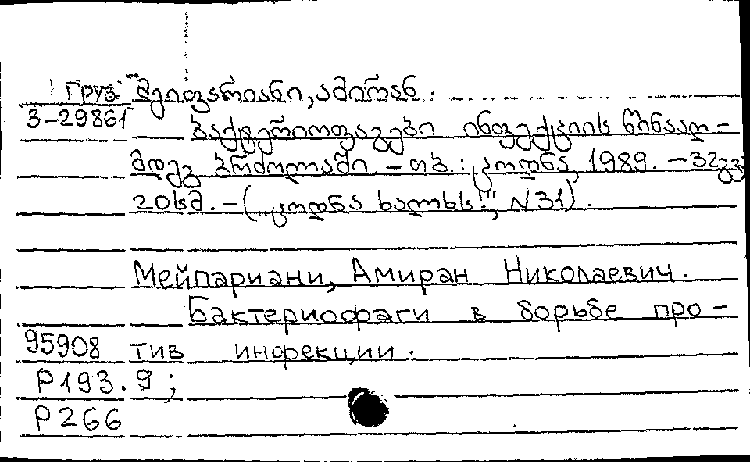 Груз მეიფარიანი, ამირან.
3-29861 ბაქტერიოფაგები ინფექციის წინააღ-
მდეგ ბრძოლაში. – თბ.: ცოდნა, 1989. – 32გვ
20სმ. – („ცოდნა ხალხს!", N31).
Мейпариани, Амиран Николаевич.
Бактериофаги в борьбе про-
95908 тив инфекции.
Р193.9;
Р266